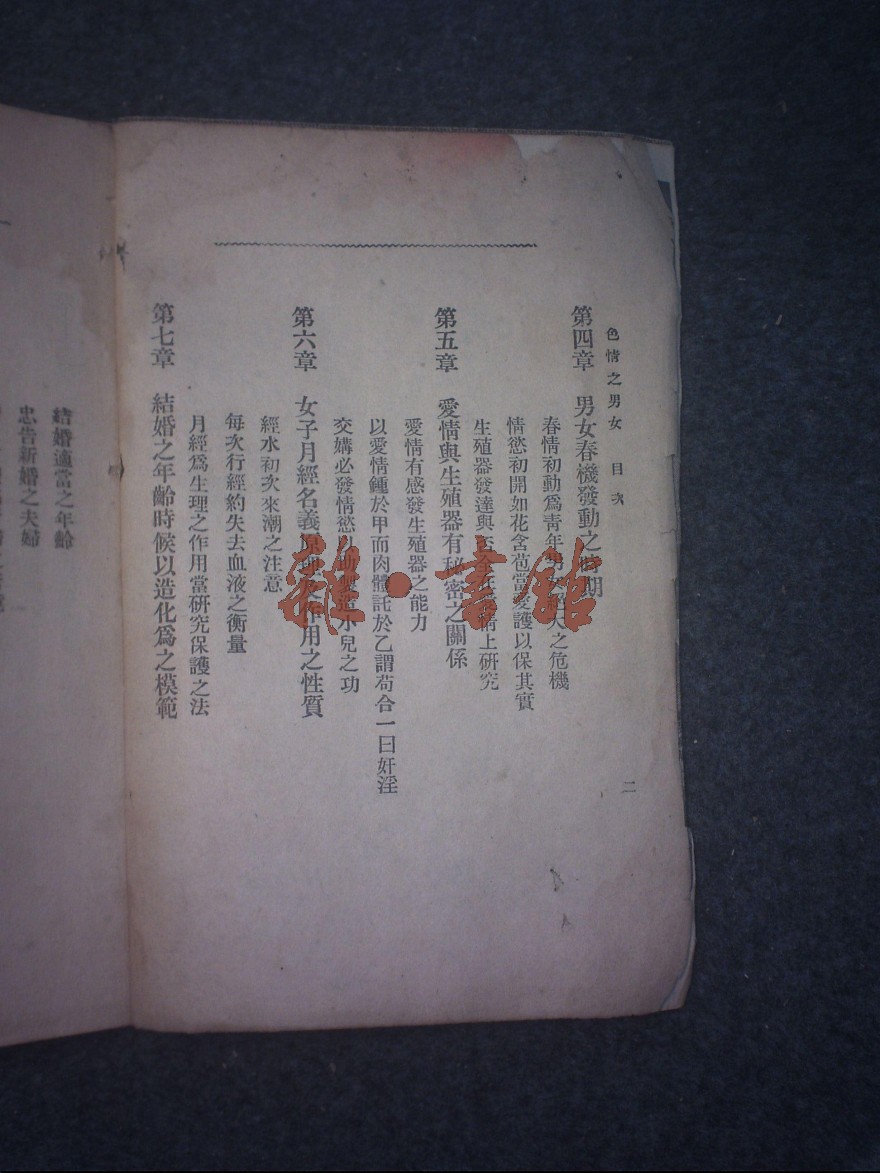 色情之男女 目次
二
第四章 男女春機發動之時期
春情初動爲青年男女絕大之危機
情慾初開如花含苞當愛護以保其實
生殖器發達與否全在 上研究
第五章 愛情與生殖器有秘密之關係
愛情有感發生殖器之能力
以愛情鍾於甲而肉體託於乙謂苟合一曰奸淫
交媾必發情慾 小兒之功
第六章 女子月經名義原理及作用之性質
經水初次來潮之注意
每次行經約失去血液之衡量
月經爲生理之作用當研究保護之法
第七章 結婚之年齡時候以造化爲之模範
結婚適當之年齡
忠告新婚之夫婦
雜·書鋪